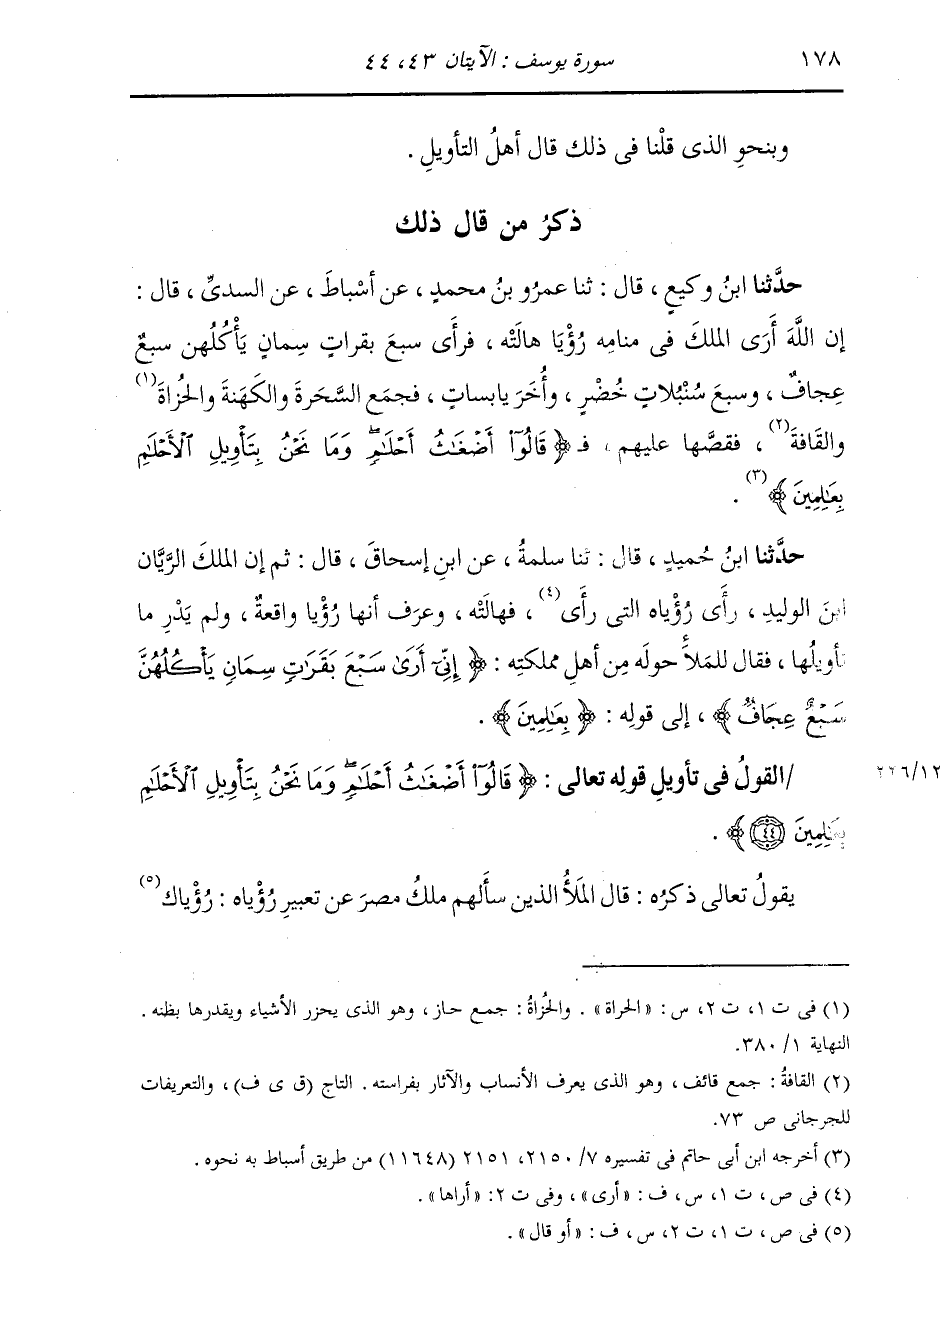 ١٧٨ سورة يوسف : الآيتان ٤٣، ٤٤
وبنحوِ الذى قلْنا فى ذلك قال أهلُ التأويلِ .
ذكرُ من قال ذلك
حدَّثنا ابنُ وكيعٍ ، قال : ثنا عمرُو بنُ محمدٍ ، عن أسْباطَ ، عن السدىِّ ، قال :
إن اللَّهَ أَرَى الملكَ فى منامِه رُؤْيَا هالَتْه ، فرأَى سبعَ بقراتٍ سِمانٍ يَأْكُلُهن سبعٌ
عِجافٌ ، وسبعَ سُنْبُلاتٍ خُضْرٍ ، وأُخَرَ يابساتٍ ، فجمَع السَّحَرةَ والكَهَنةَ والحُزاةَ(١)
والقَافةَ(٢) ، فقصَّها عليهم ، فـ ﴿ قَالُوٓا۟ أَضْغَـٰثُ أَحْلَـٰمٍۖ وَمَا نَحْنُ بِتَأْوِيلِ ٱلْأَحْلَـٰمِ
بِعَـٰلِمِينَ ﴾(٣) .
حدَّثنا ابنُ حُميدٍ ، قال : ثنا سلمةُ ، عن ابنِ إسحاقَ ، قال : ثم إن الملكَ الرَّيَّان
ابنَ الوليدِ ، رأَى رُؤْياه التى رأَى(٤) ، فهالَتْه ، وعرَف أنها رُؤْيا واقعةٌ ، ولم يَدْرِ ما
تأويلُها ، فقال للمَلأَ حولَه مِن أهلِ مملكتِه : ﴿ إِنِّىٓ أَرَىٰ سَبْعَ بَقَرَٰتٍ سِمَانٍ يَأْكُلُهُنَّ
سَبْعٌ عِجَافٌ ﴾ ، إلى قولِه : ﴿ بِعَـٰلِمِينَ ﴾ .
/القولُ فى تأويلِ قولِه تعالى : ﴿ قَالُوٓا۟ أَضْغَـٰثُ أَحْلَـٰمٍۖ وَمَا نَحْنُ بِتَأْوِيلِ ٱلْأَحْلَـٰمِ ٢٢٦/١٢
بِعَـٰلِمِينَ ٤٤ ﴾ .
يقولُ تعالى ذكرُه : قال المَلَأُ الذين سأَلهم ملكُ مصرَ عن تعبيرِ رُؤْياه : رُؤْياك(٥)
(١) فى ت ١، ت ٢، س : «الحراة» . والحُزاةُ : جمع حاز، وهو الذى يحزر الأشياء ويقدرها بظنه .
النهاية ١/ ٣٨٠.
(٢) القافةُ : جمع قائف ، وهو الذى يعرف الأنساب والآثار بفراسته . التاج (ق ى ف) ، والتعريفات
للجرجانى ص ٧٣.
(٣) أخرجه ابن أبى حاتم فى تفسيره ٧/ ٢١٥٠، ٢١٥١ (١١٦٤٨) من طريق أسباط به نحوه .
(٤) فى ص، ت ١، س، ف : «أرى» ، وفى ت ٢: «أراها» .
(٥) فى ص، ت ١، ت ٢، س، ف : «أو قال» .